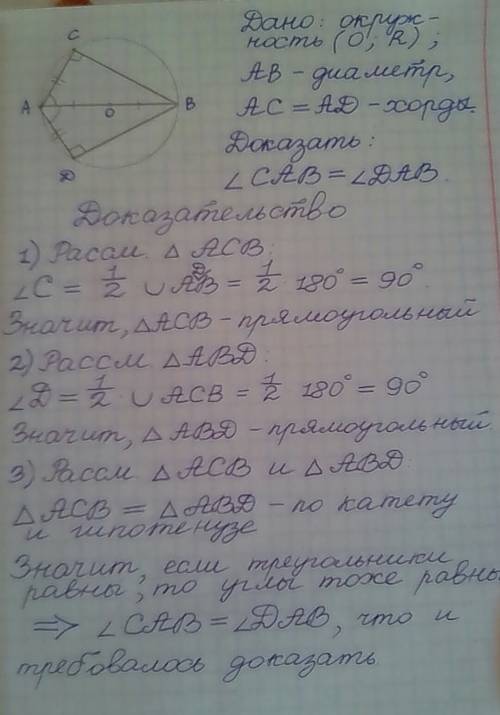 C
A
O
B
D
Дано: окруж-
ность (O; R);
AB - диаметр,
AC = AD - хорды.
Доказать:
∠CAB = ∠DAB.
Доказательство
1) Рассм. △ ACB:
∠C = 1/2 ∪ ADB = 1/2 180° = 90°.
Значит, △ACB - прямоугольный
2) Рассм. △ABD:
∠D = 1/2 ∪ ACB = 1/2 180° = 90°
Значит, △ABD - прямоугольный.
3) Рассм. △ACB и △ABD.
△ACB = △ABD - по катету
и гипотенузе
Значит, если треугольники
равны, то углы тоже равны
⇒ ∠CAB = ∠DAB, что и
требовалось доказать.